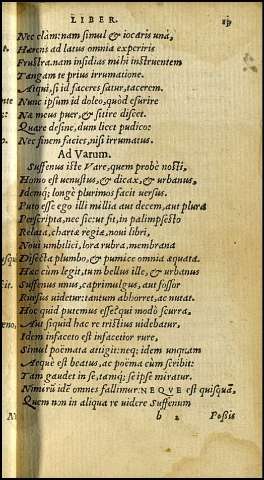 LIBER.
Nec clàm: nam simul & iocaris unà,
Hærens ad latus omnia experiris
Frustra. nam insidias mihi instruentem
Tangam te prius irrumatione.
Atqui, si id faceres satur, tacerem.
Nunc ipsum id doleo, quòd esurire
Na meus puer, & sitire discet.
Quare desine, dum licet pudico:
Nec finem facies, nisi irrumatus.
Ad Varum.
Suffenus iste Vare, quem probè nosti,
Homo est uenustus, & dicax, & urbanus,
Idemq; longè plurimos facit uersus.
Puto esse ego illi millia aut decem, aut plura
Perscripta, nec sic: ut fit, in palimpsesto
Relata, chartæ regiæ, noui libri,
Noui umbilici, lora rubra, membrana
Disecta plumbo, & pumice omnia æquata.
Hæc cum legit, tum bellus ille, & urbanus
Suffenus unus, caprimulgus, aut fossor
Rursus uidetur: tantum abhorret, ac mutat.
Hoc quid putemus esse? qui modò scurra,
Aut siquid hac re tristius uidebatur,
Idem infaceto est infacetior rure,
Simul poëmata attigit: neq; idem unquam
Aequè est beatus, ac poëma cùm scribit:
Tam gaudet in se, tamq; se ipse miratur.
Nimirū idē omnes fallimur. NEQVE est quisquā,
Quem non in aliqua re uidere Suffenum
b 2 Possis